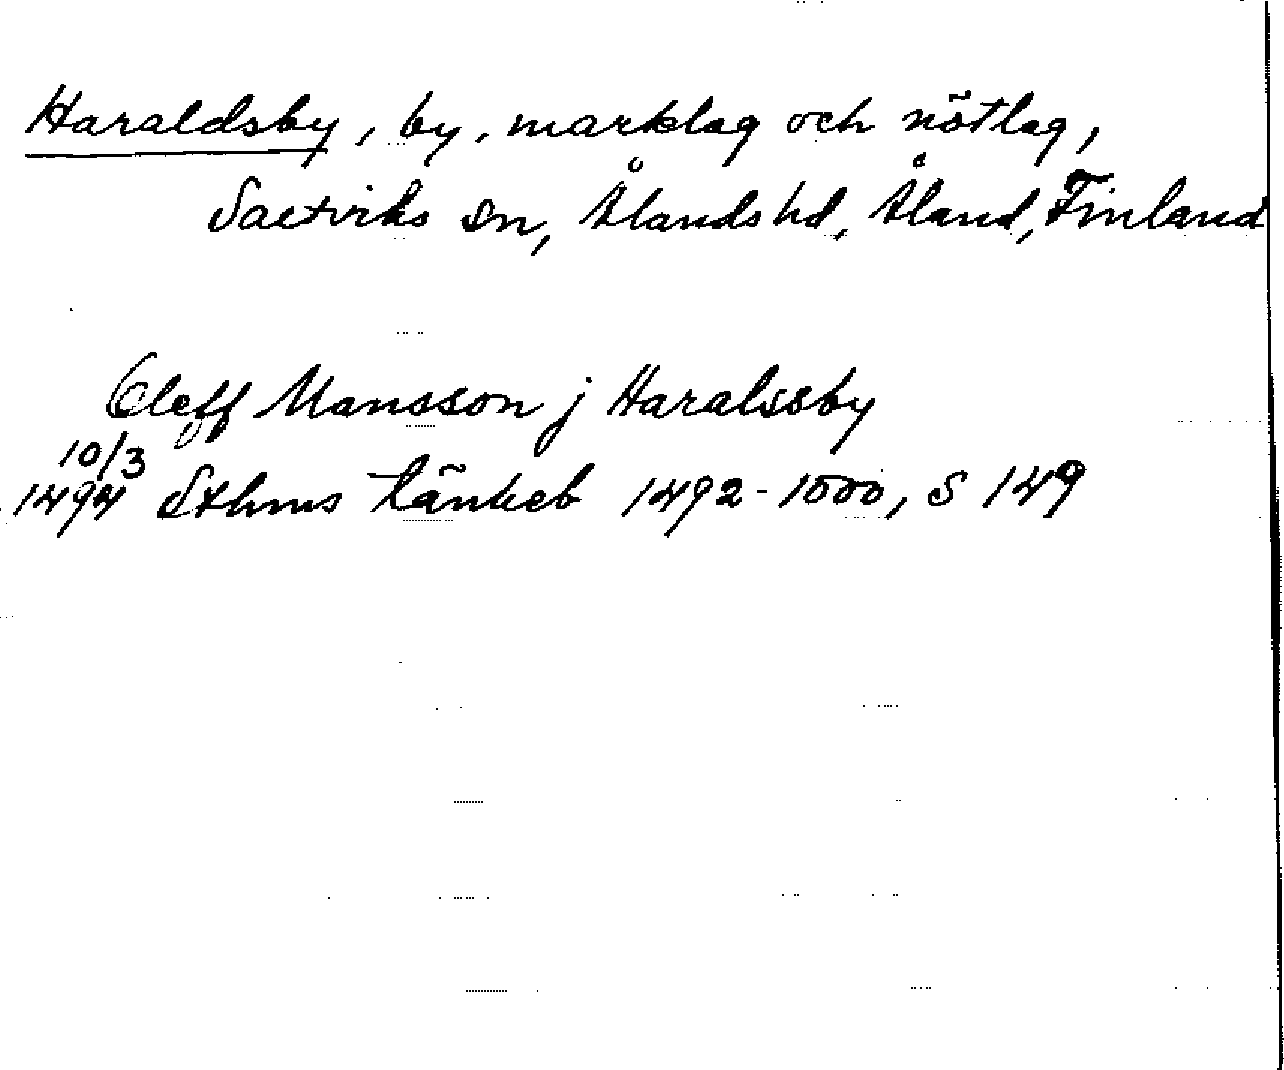 Haraldsby, by, marklag och nötlag,
Saltviks sn, Ålands hd, Åland, Finland
Oleff Mansson j Haralssby
10/3
1494 Sthms tänkeb 1492-1500, S 149